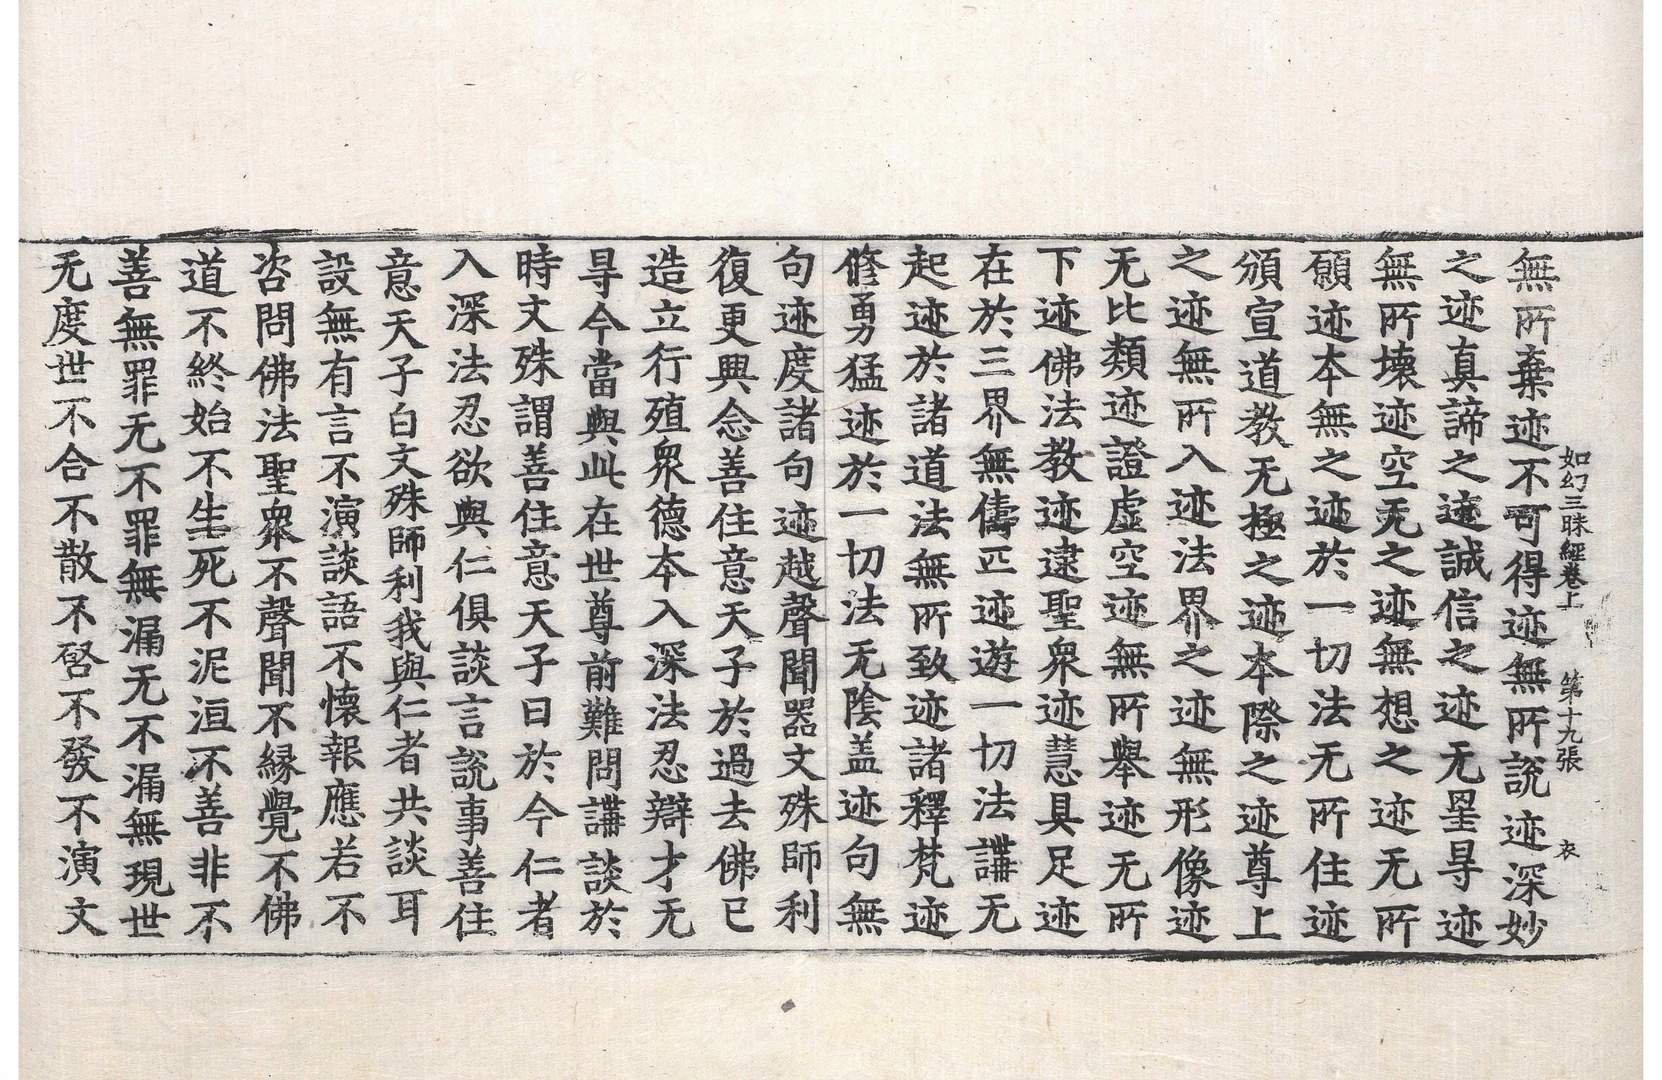 如幻三昧經卷上　第十九張　衣
無所棄迹不可得迹無所說迹深妙
之迹真諦之迹誠信之迹无罣㝵迹
無所壞迹空无之迹無想之迹无所
願迹本無之迹於一切法无所住迹
頒宣道教无極之迹本際之迹尊上
之迹無所入迹法界之迹無形像迹
无比類迹證虛空迹無所舉迹无所
下迹佛法教迹逮聖衆迹慧具足迹
在於三界無儔匹迹遊一切法講无
起迹於諸道法無所致迹諸釋梵迹
修勇猛迹於一切法无陰盖迹句無
句迹度諸句迹越聲聞器文殊師利
復更興念善住意天子於過去佛已
造立行殖衆德本入深法忍辯才无
㝵今當與此在世尊前難問講談於
時文殊謂善住意天子曰於今仁者
入深法忍欲與仁俱談言說事善住
意天子白文殊師利我與仁者共談耳
設無有言不演談語不懷報應若不
咨問佛法聖衆不聲聞不緣覺不佛
道不終始不生死不泥洹不善非不
善無罪无不罪無漏无不漏無現世
无度世不合不散不啓不發不演文